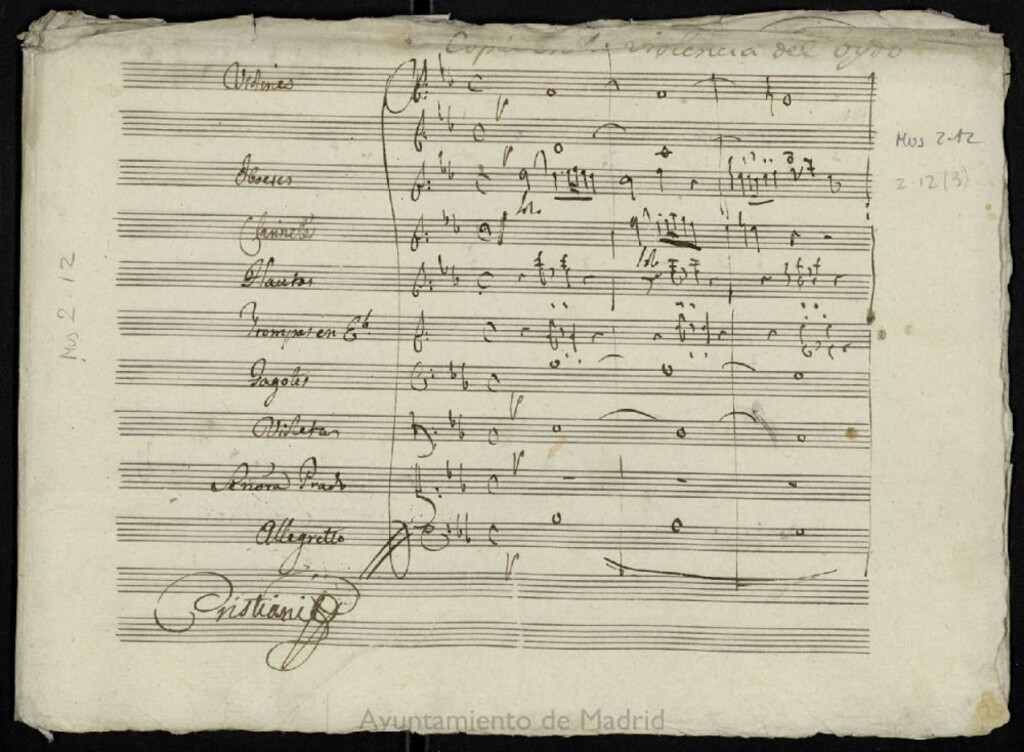 violencia del oydo
Violines
Mus 2-12
2-12(3)
Oboeses
Clarinete
Flautas
Mus 2-12
Trompas en Eb
Fagotes
Violetas
Señora Prado
Allegretto
Cristiani
Ayuntamiento de Madrid